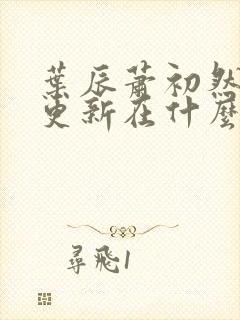 葉辰蕭初然
更新在什麼
尋飛1